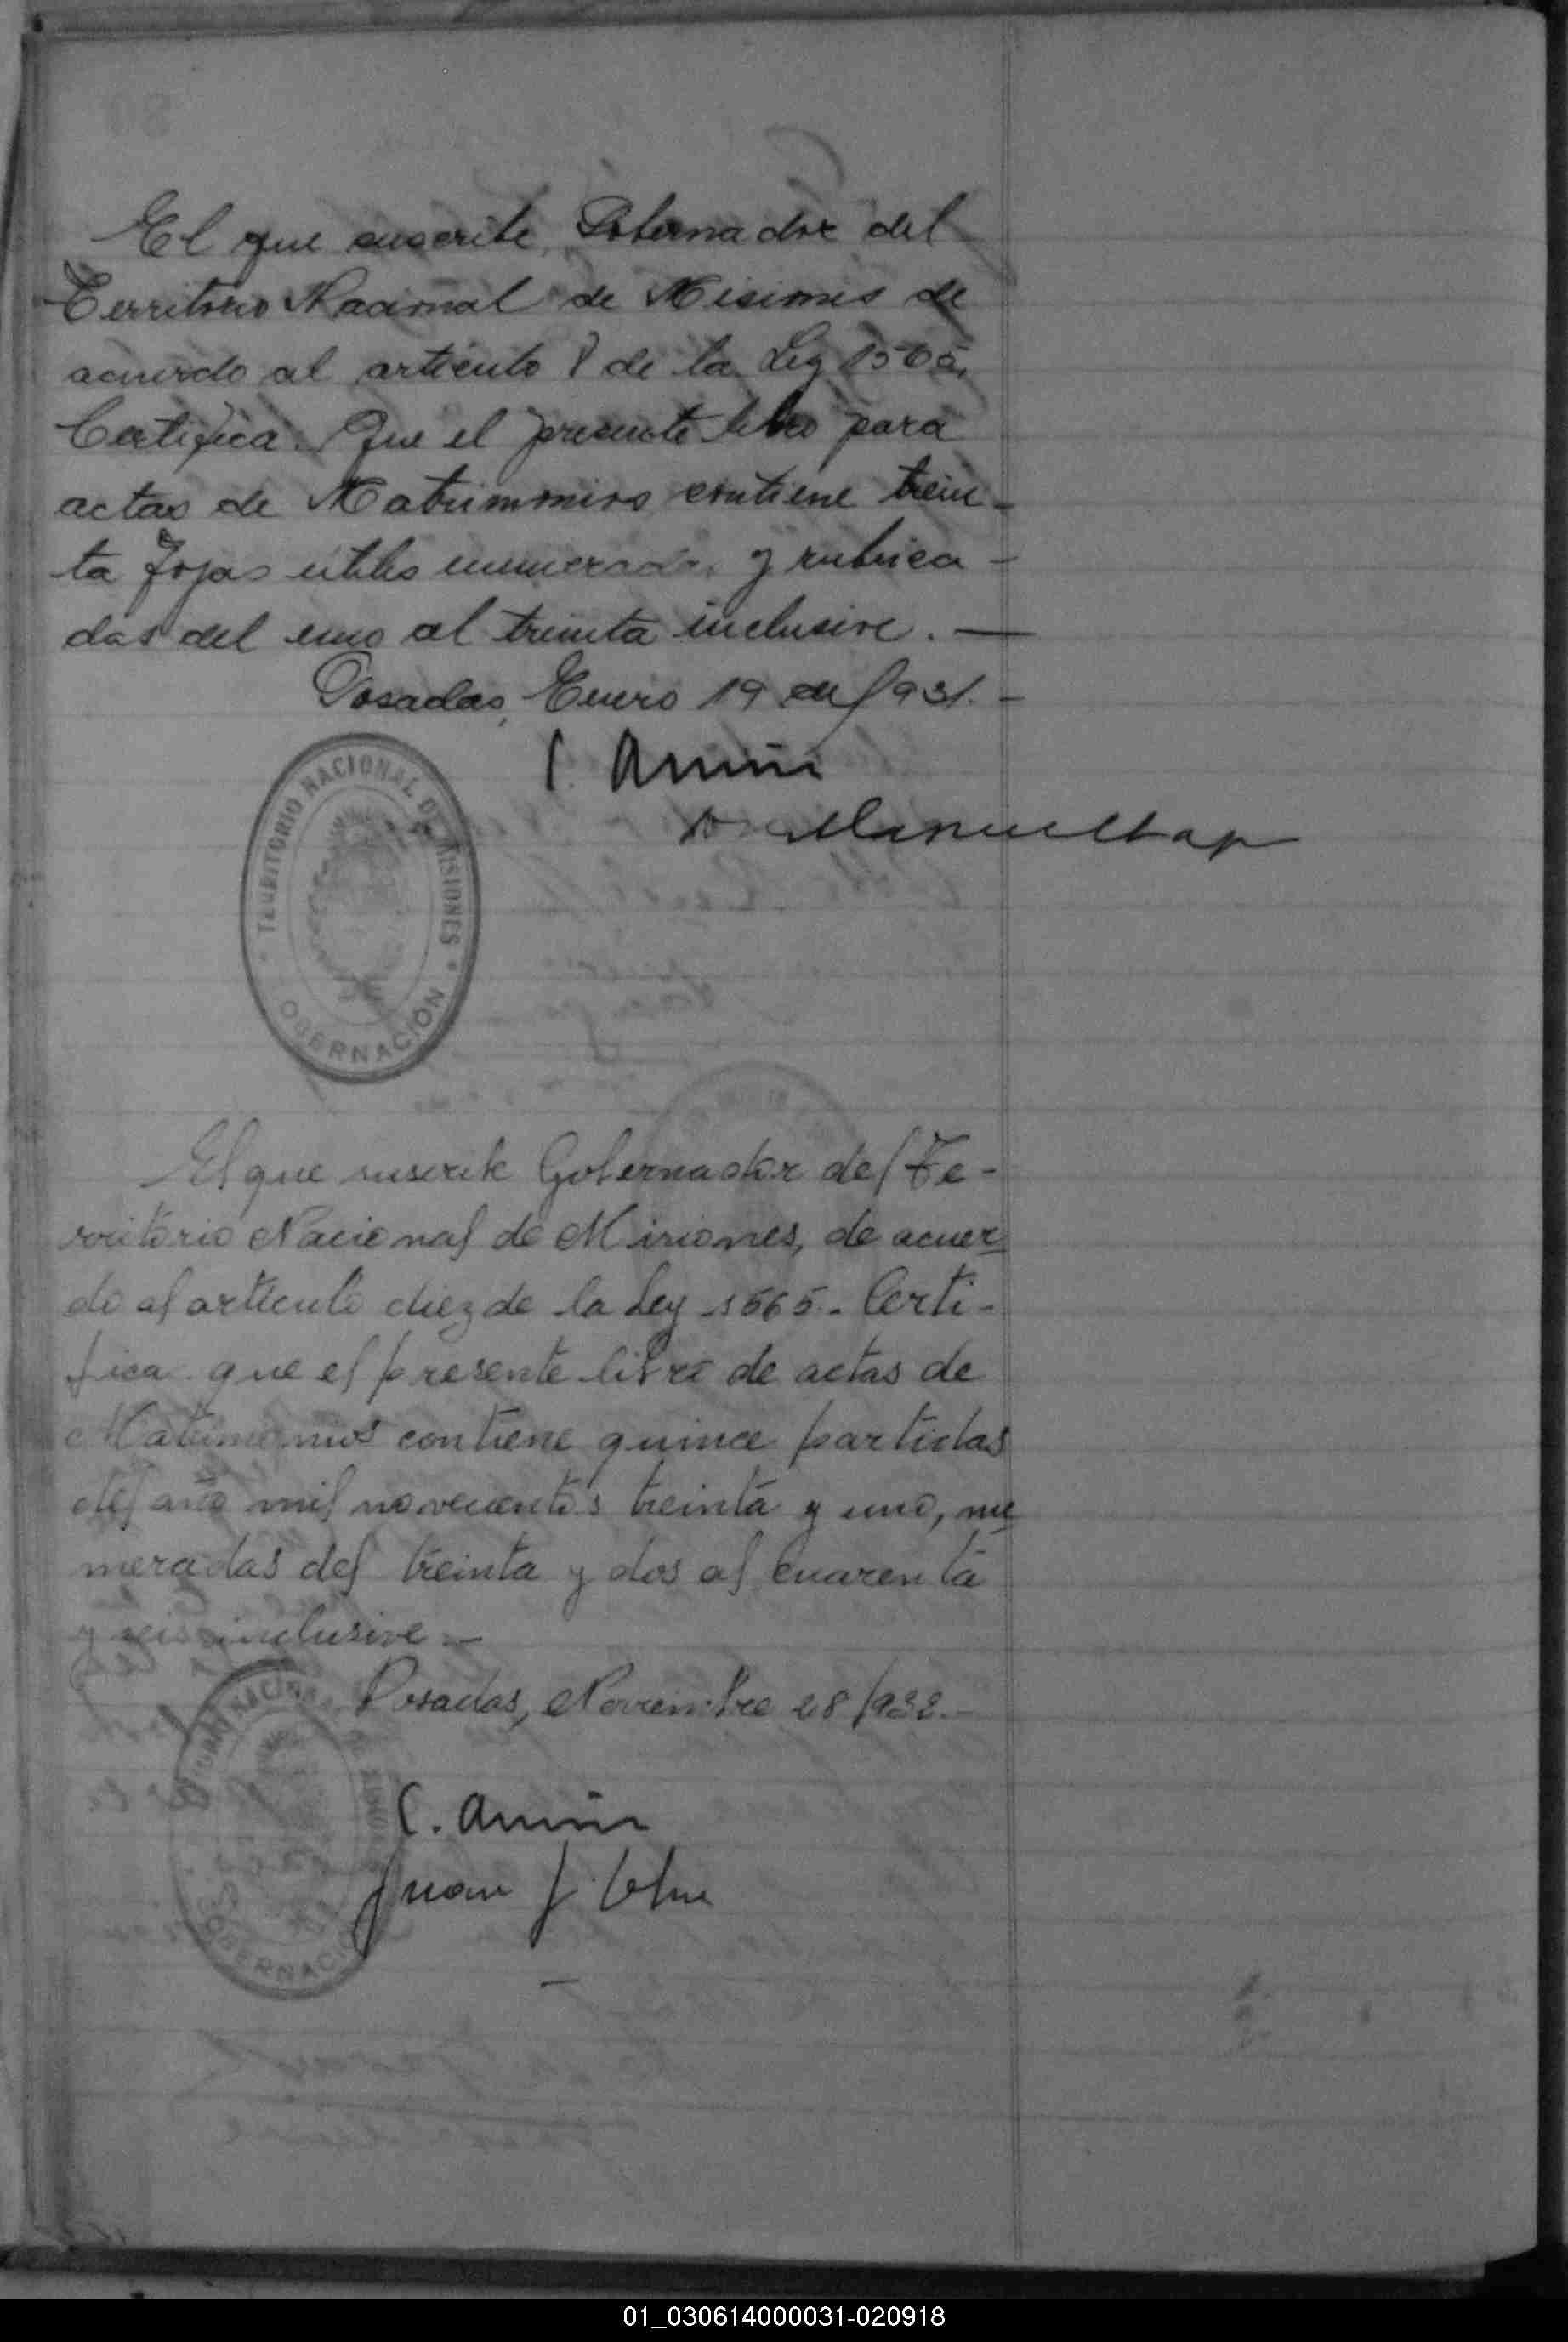 El que suscribe, Gobernador del
Territorio Nacional de Misiones de
acuerdo al artículo 8 de la Ley 1565,
Certifica: Que el presente libro para
actas de Matrimonios contiene trein-
ta fojas útiles enumeradas y rubrica-
das del uno al treinta inclusive. —
Posadas, Enero 19 de 1931. -
TERRITORIO NACIONAL DE MISIONES
GOBERNACIÓN
El que suscribe Gobernador del Te-
rritorio Nacional de Misiones, de acuer-
do al artículo diez de la Ley 1565.- Certi-
fica que el presente libro de actas de
Matrimonios contiene quince partidas
del año mil novecientos treinta y uno, nu-
meradas del treinta y dos al cuarenta
y seis inclusive.-
Posadas, Noviembre 28/932.-
C.
Juan J.
GOBERNACIÓN
01_030614000031-020918